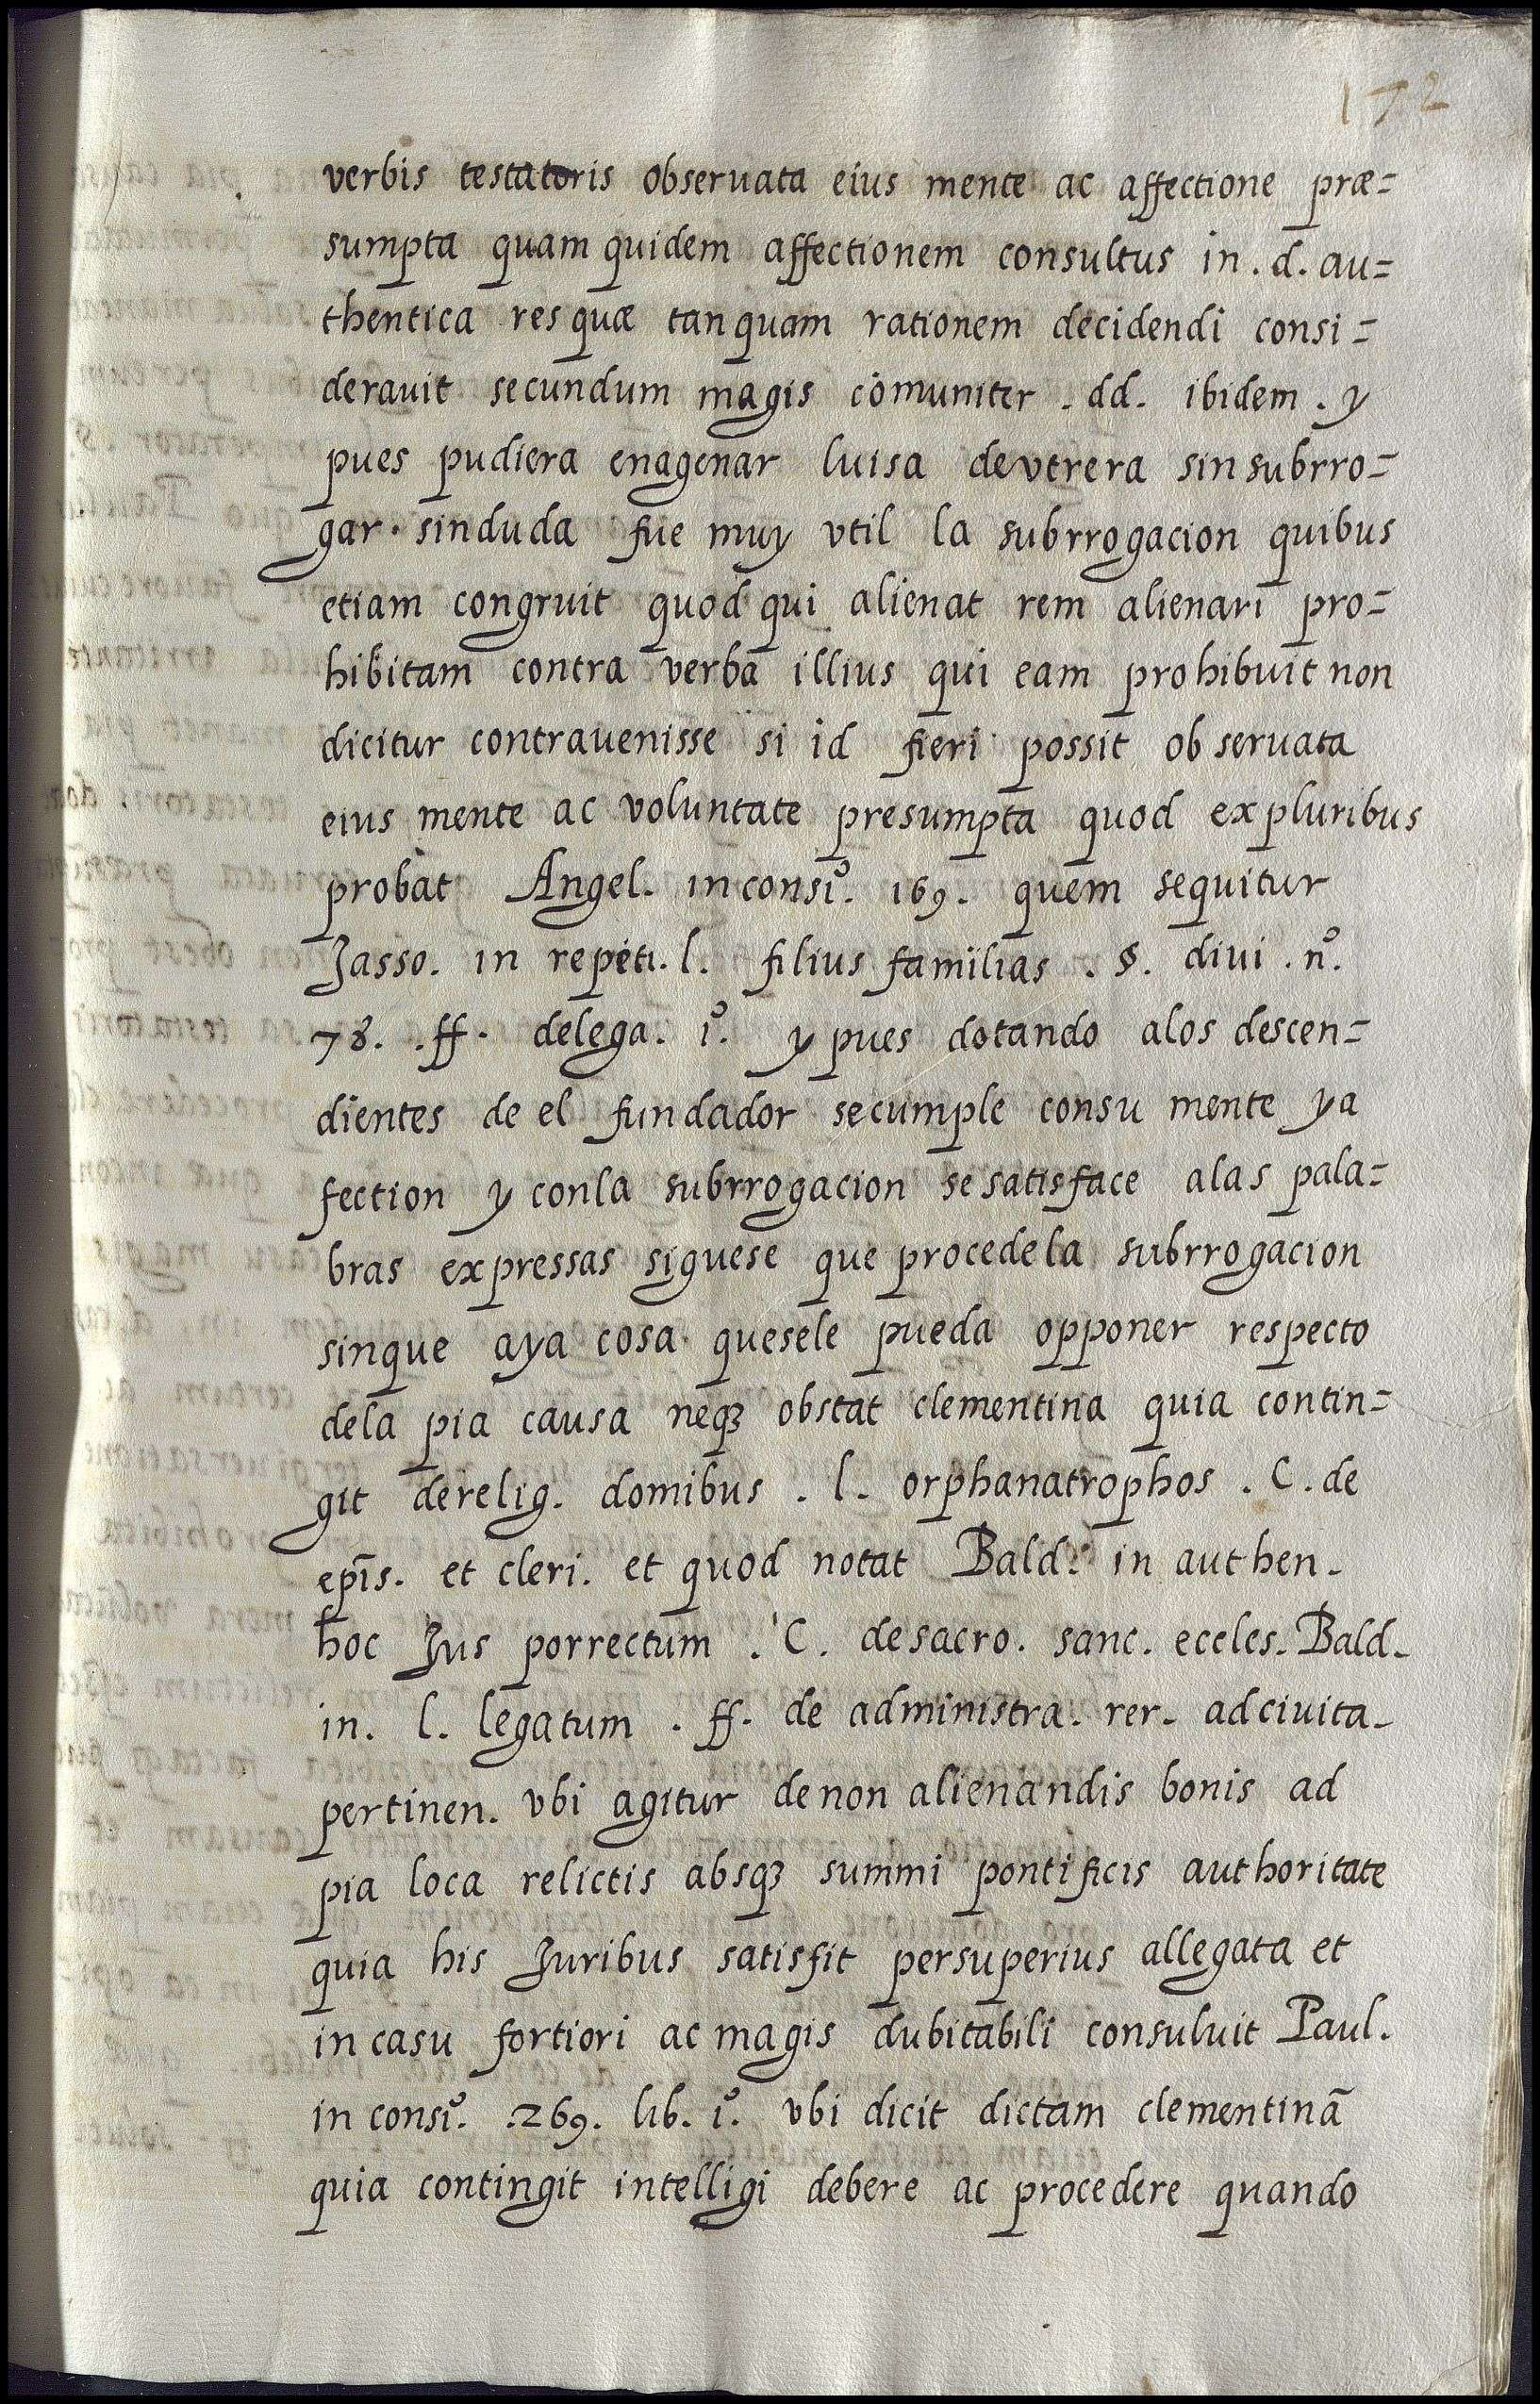 172
verbis testatoris obseruata eius mente ac affectione præ=
sumpta quam quidem affectionem consultus in . d. au=
thentica res quæ tanquam rationem decidendi consi=
derauit secundum magis comuniter . dd. ibidem . y
pues pudiera enagenar luisa devtrera sin subrro=
gar. sinduda fue muy vtil la subrrogacion quibus
etiam congruit quod qui alienat rem alienari pro=
hibitam contra verba illius qui eam prohibuit non
dicitur contrauenisse si id fieri possit obseruata
eius mente ac voluntate presumpta quod ex pluribus
probat Angel. in consiº. 169. quem sequitur
Jasso. in repeti. l. filius familias . §. diui . nº.
78. .ff. delega. iº. y pues dotando alos descen=
dientes de el fundador secumple consu mente ya
fection y conla subrrogacion se satisface alas pala=
bras expressas siguese que procede la subrrogacion
sinque aya cosa quesele pueda opponer respecto
dela pia causa neqꝫ obstat clementina quia contin=
git derelig. domibus . l. orphanatrophos . C. de
epīs. et cleri. et quod notat Bald. in authen.
hoc Jus porrectum . C. desacro. sanc. eccles. Bald.
in. l. legatum . ff. de administra. rer. adciuita.
pertinen. vbi agitur de non alienandis bonis ad
pia loca relictis absqꝫ summi pontificis authoritate
quia his Juribus satisfit persuperius allegata et
in casu fortiori ac magis dubitabili consuluit Paul.
in consiº. .269. lib. iº. vbi dicit dictam clementinā
quia contingit intelligi debere ac procedere quando